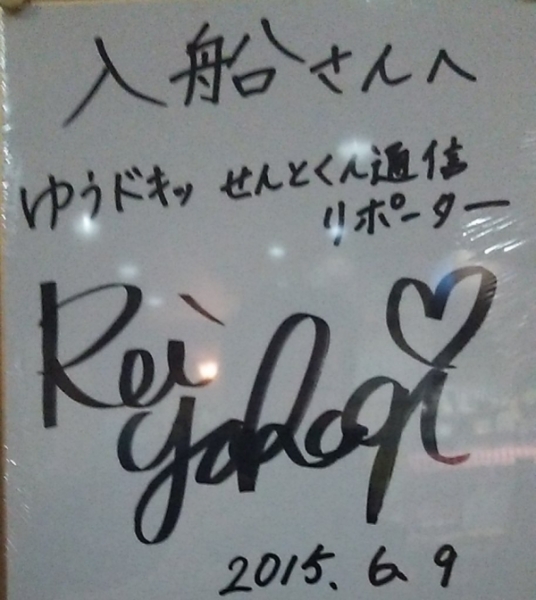 入船さんへ
ゆうドキッ せんとくん通信
リポーター
Rei
Yabagi
2015. 6. 9